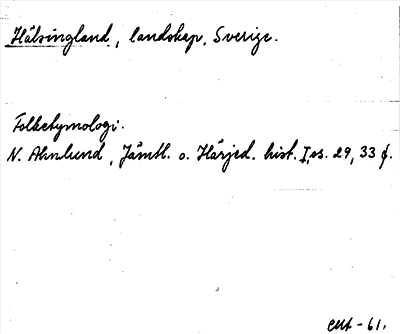 Hälsingland, landskap, Sverige.
Folketymologi.
N. Ahnlund, Jämtl. o. Härjed. hist. I, ss. 29, 33 f.
-61.